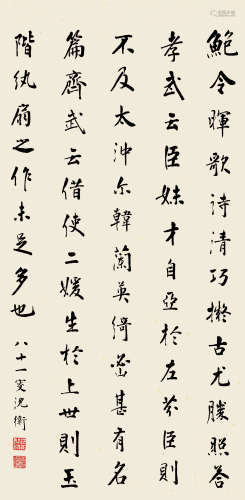 鮑令暉歌詩清巧擬古尤勝照答
孝武云臣妹才自亞於左芬臣則
不及太沖尔韓蘭英綺密甚有名
篇齊武云借使二媛生於上世則玉
階紈扇之作未足多也
八十一叟沈衛